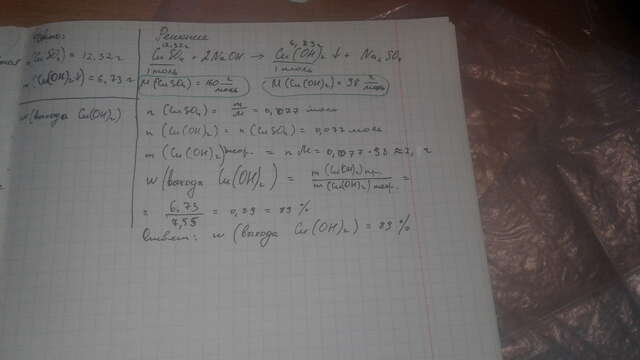 Дано:
m(CuSO₄) = 12,32 г
m(Cu(OH)₂↓) = 6,73 г
w(выхода Cu(OH)₂)
Решение
12,32г 6,73г
CuSO₄ + 2NaOH → Cu(OH)₂↓ + Na₂SO₄
1 моль 1 моль
M(CuSO₄) = 160 г/моль M(Cu(OH)₂) = 98 г/моль
n(CuSO₄) = m/M = 0,077 моль
n(Cu(OH)₂) = n(CuSO₄) = 0,077 моль
m(Cu(OH)₂)теор. = n M = 0,077 · 98 ≈ г
w(выхода Cu(OH)₂) = m(Cu(OH)₂)пр. / m(Cu(OH)₂)теор. =
= 6,73 / 7,55 = 0,89 = 89 %
Ответ: w(выхода Cu(OH)₂) = 89 %